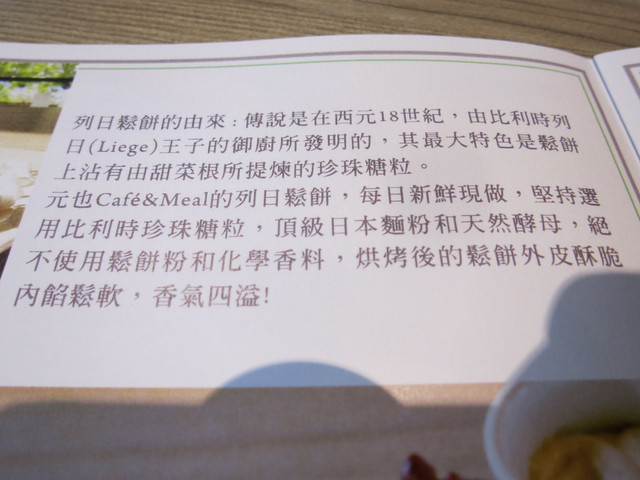 列日鬆餅的由來：傳說是在西元18世紀，由比利時列
日(Liege)王子的御廚所發明的，其最大特色是鬆餅
上沾有由甜菜根所提煉的珍珠糖粒。
元也Café&Meal的列日鬆餅，每日新鮮現做，堅持選
用比利時珍珠糖粒，頂級日本麵粉和天然酵母，絕
不使用鬆餅粉和化學香料，烘烤後的鬆餅外皮酥脆
內餡鬆軟，香氣四溢!